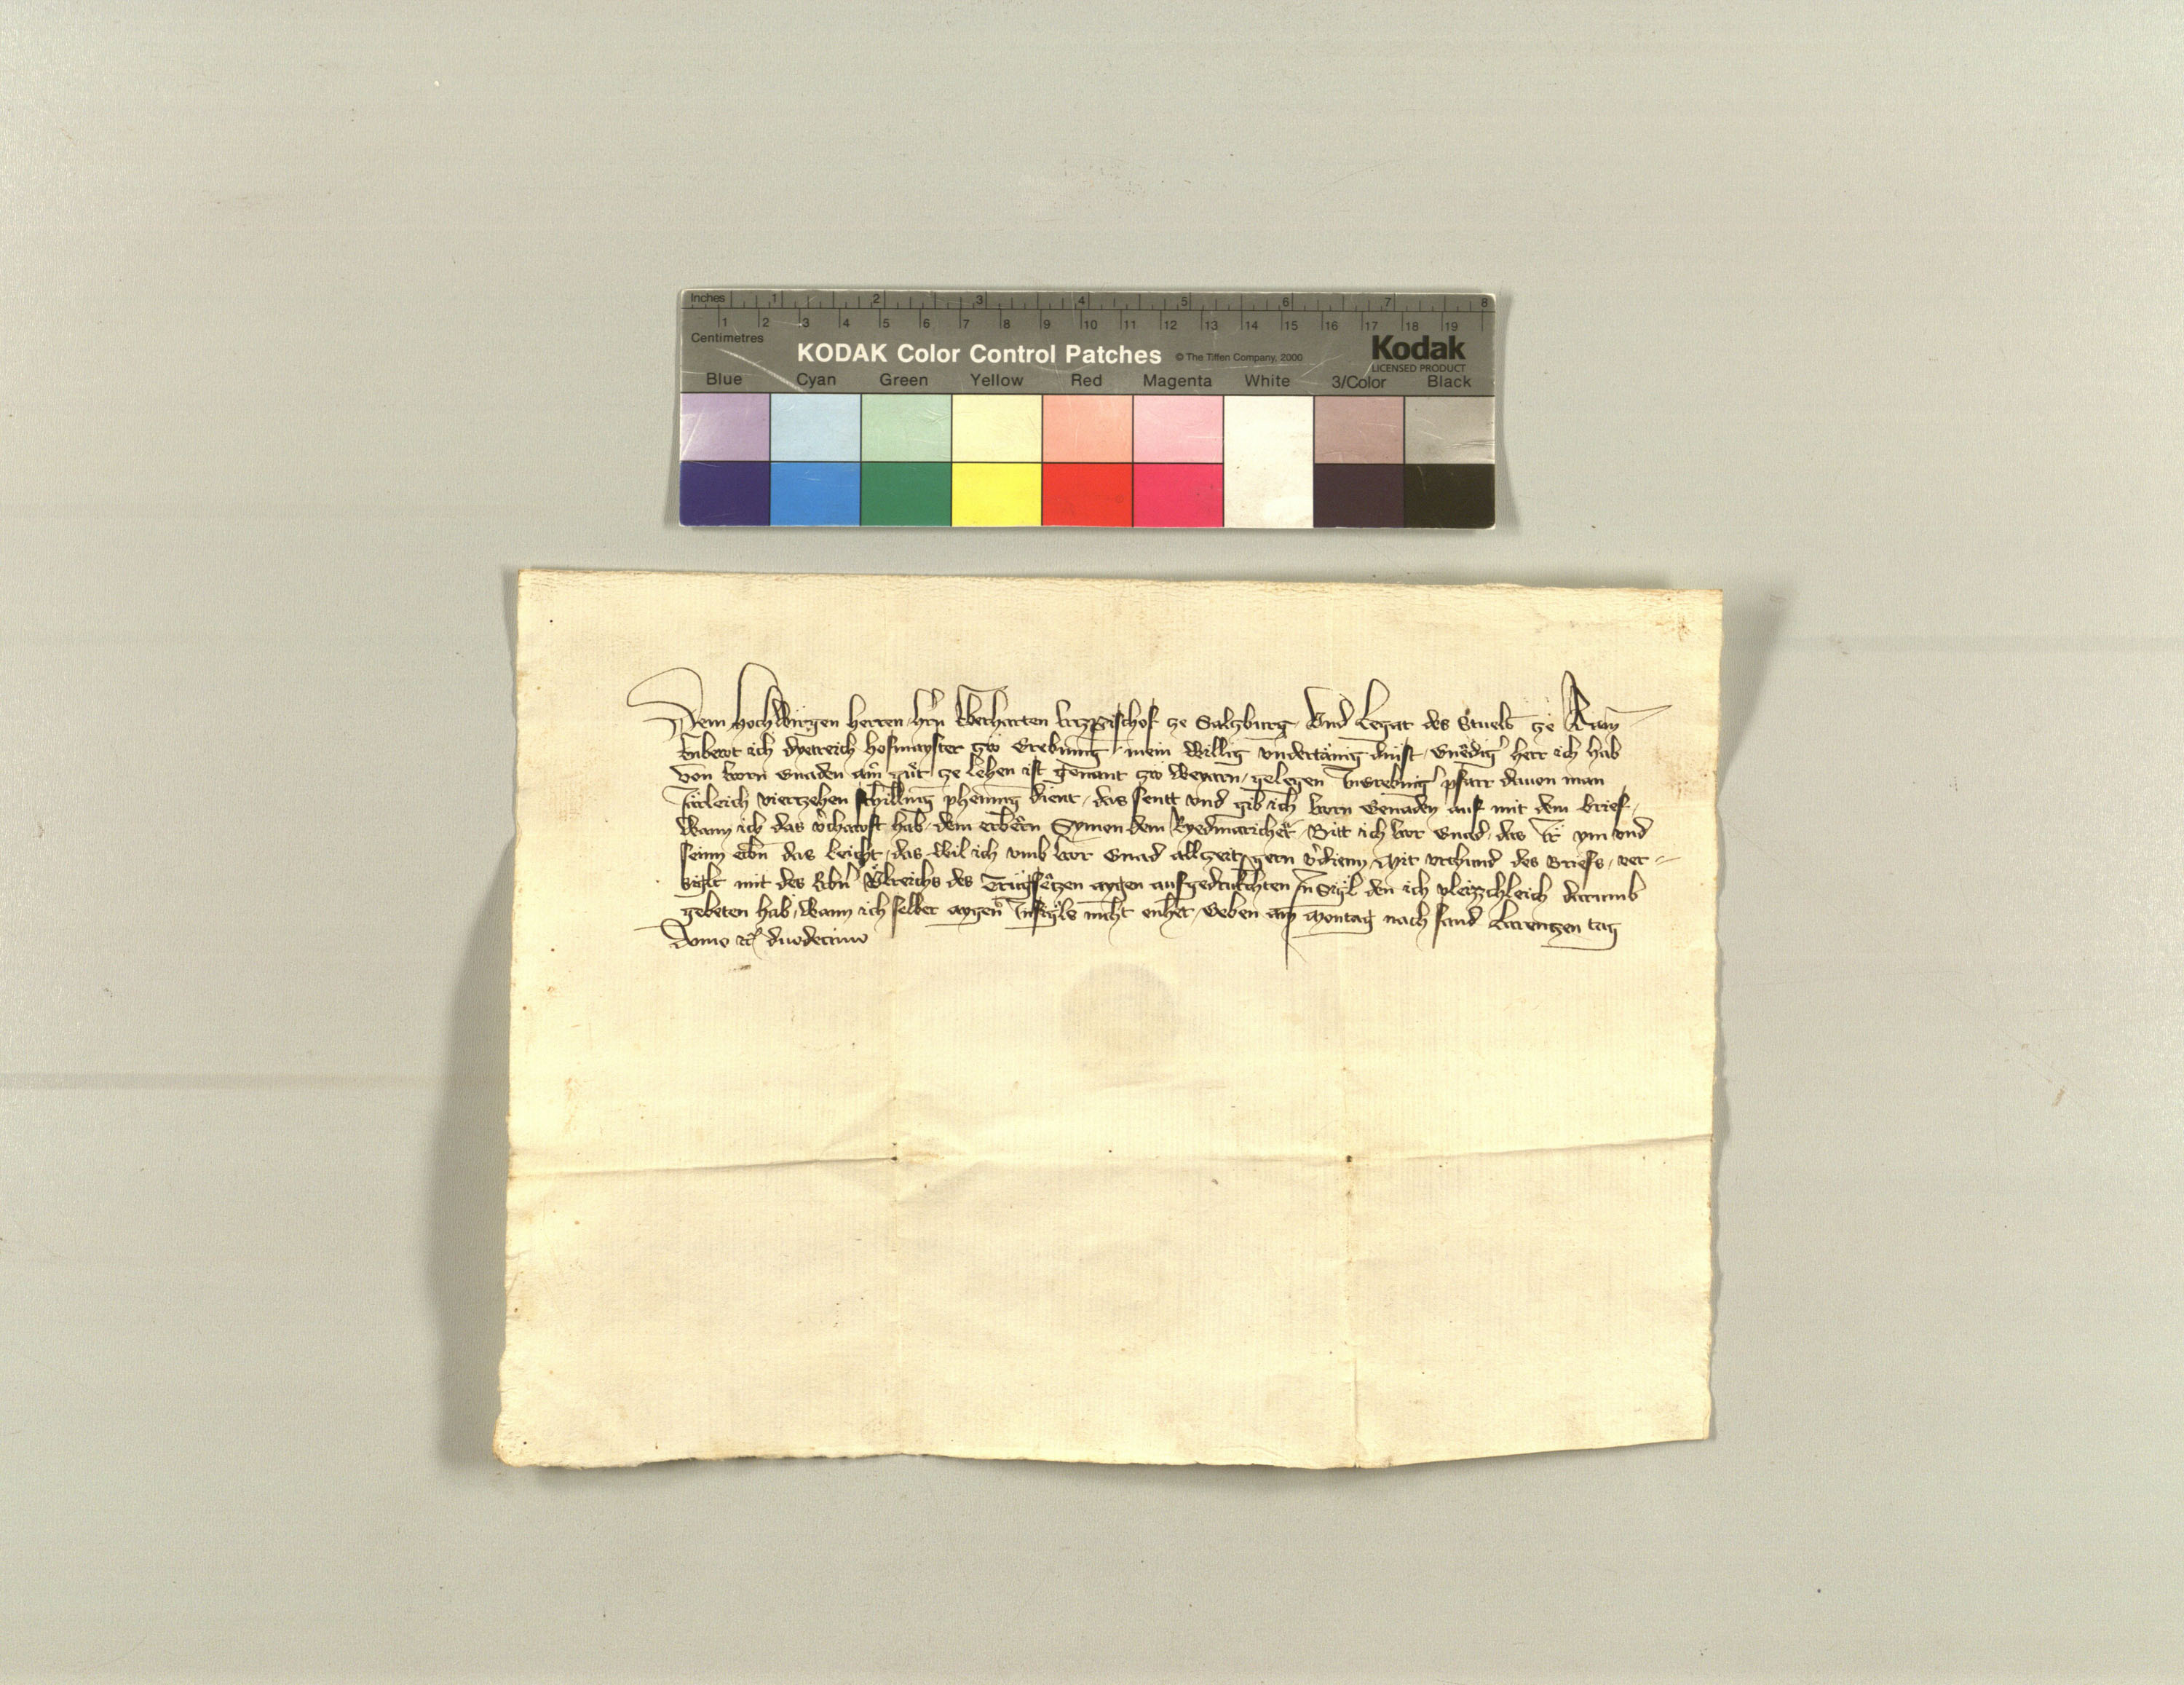 Inches 1 2 3 4 5 6 7 8
1 2 3 4 5 6 7 8 9 10 11 12 13 14 15 16 17 18 19
Centimetres
KODAK Color Control Patches © The Tiffen Company, 2000 Kodak
LICENSED PRODUCT
Blue Cyan Green Yellow Red Magenta White 3/Color Black
Dem hochwirgen herren hern Eberharten Ertzpischof ze Salzburg Und Legat des Stuels ze Rom
Enbewt ich dyetreich hofmayster zw mein willig vndertänig dinst Gnedig herr ich hab
von ewrn gnaden ain gut ze lehen ist genant zw Weyarn gelegen pfarr dauon man
Järleich viertzehen schilling phening dient das sentt vnd gib ich ewrn Genaden auf mit dem brief
wann ich das v'chawft hab dem erbern Symon dem Bitt ich ewr Gnad das ir ym vnd
seinn erbn das leicht das wil ich vmb ewr Gnad allzeit gern v'dienn Mit vrchund des Briefs ver
siglt mit des Erbn Vlreichs des aygen aufgedrukchten Insigl den ich vleizzchleich darumb
gebeten hab wann ich selber aygens Insigls nicht enhet Geben am Montag nach sand Larentzen tag
Anno etc duodecimo